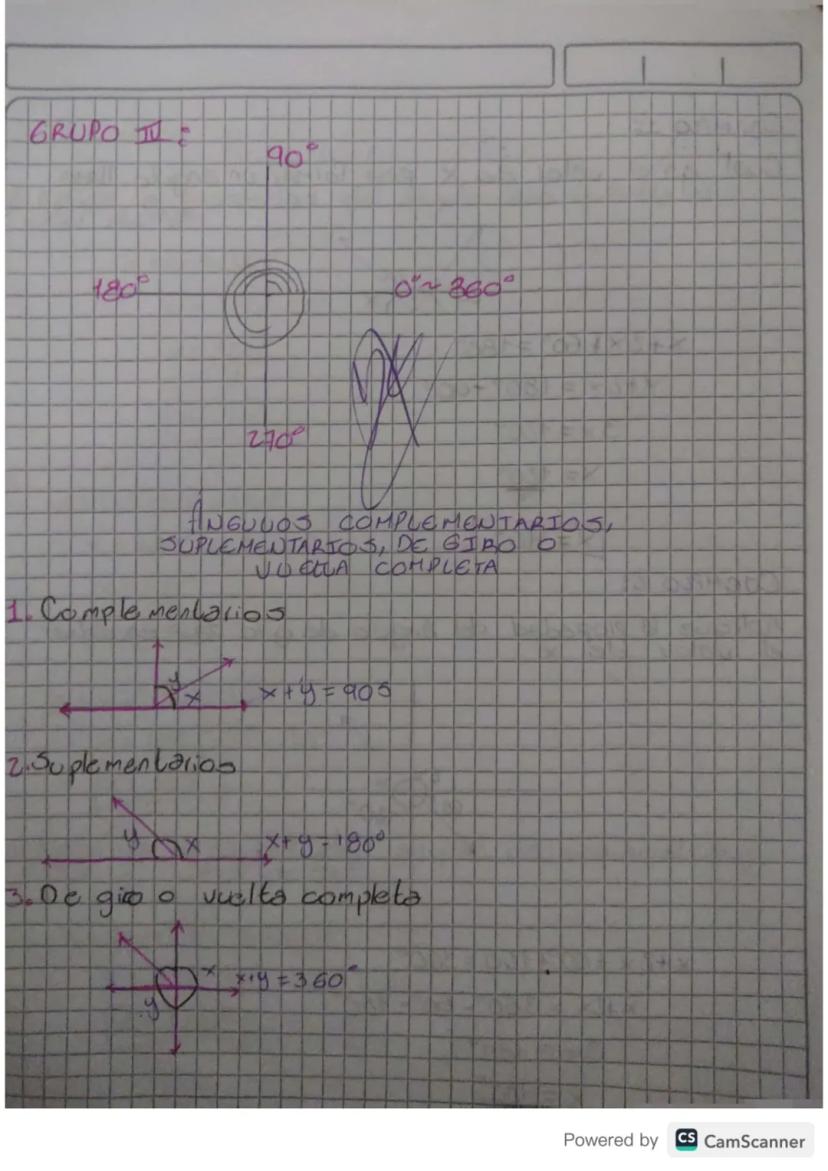 GRUPO IV:
90°
180°
0° ~ 360°
270°
ÁNGULOS COMPLEMENTARIOS,
SUPLEMENTARIOS, DE GIRO O
VUELTA COMPLETA
1. Complementarios
y
x
x+y=90°
2. Suplementarios
y x
x+y=180°
3. De giro o vuelta completa
x
x+y=360°
y
Powered by CS CamScanner